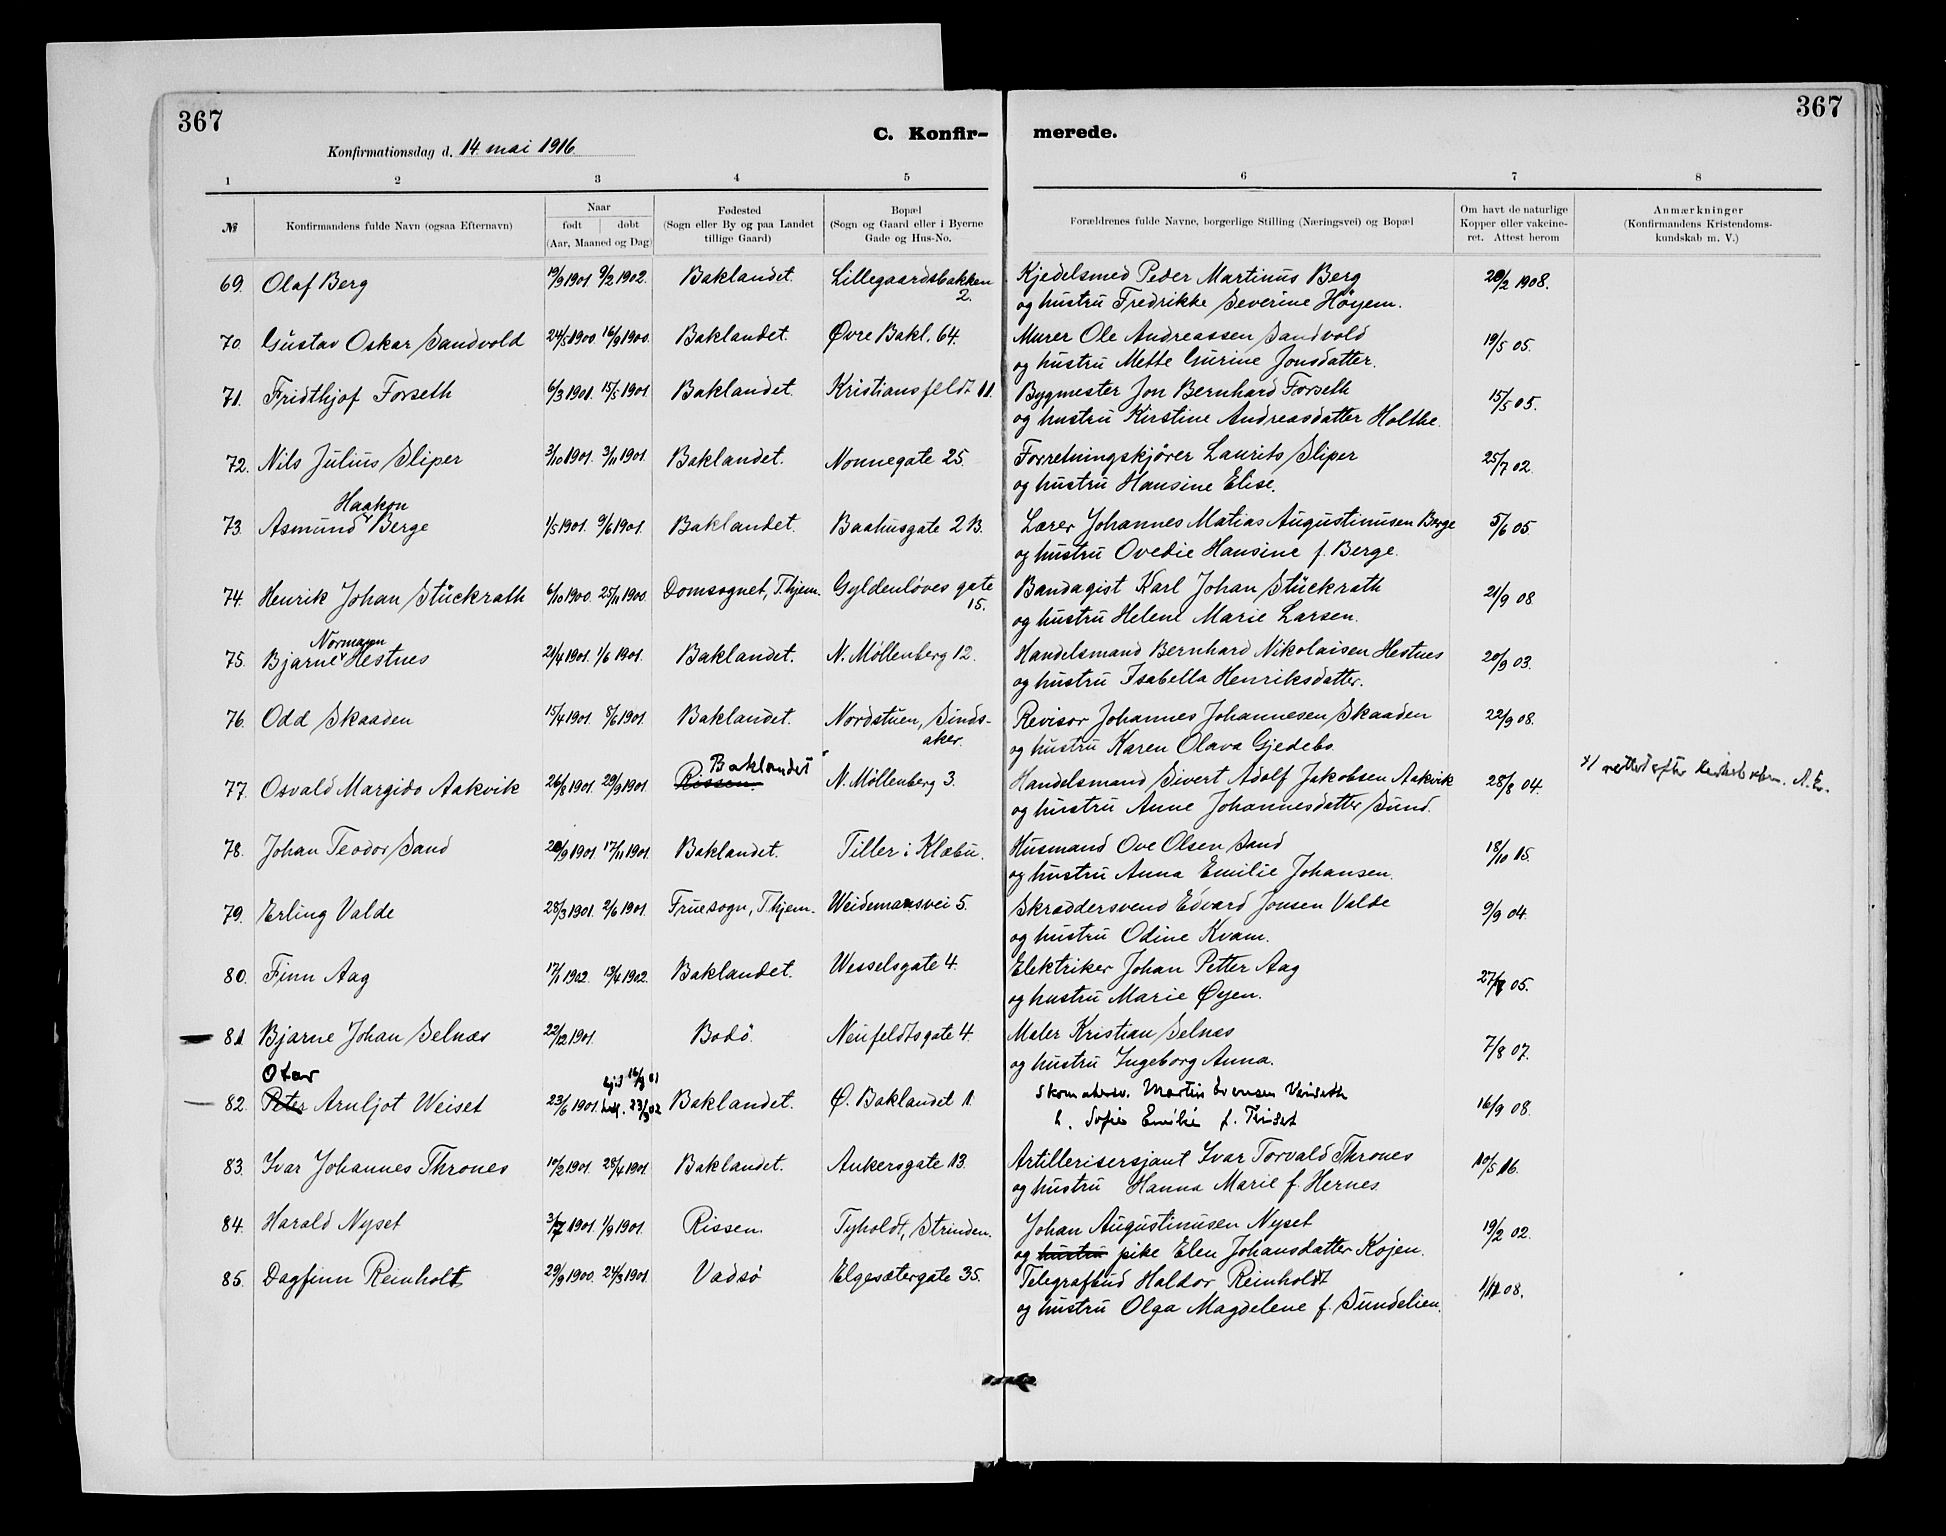 367
367
C. Konfir-
merede.
Konfirmationsdag d. 14 mai 1916
1 2 3 4 5 6 7 8
№ Konfirmandens fulde Navn (ogsaa Efternavn) Naar født døbt (Aar, Maaned og Dag) Fødested (Sogn eller By og paa Landet tillige Gaard) Bopæl (Sogn og Gaard eller i Byerne Gade og Hus-No. Forældrenes fulde Navne, borgerlige Stilling (Næringsvei) og Bopæl Om havt de naturlige Kopper eller vakcineret. Attest herom Anmærkninger (Konfirmandens Kristendomskundskab m. V.)
69. Olaf Berg 19/9 1901 9/2 1902. Baklandet. Lillegaardsbakken 2. Kjedelsmed Peder Martinus Berg 20/2 1908.
og hustru Fredrikke Severine Höyem.
70. Gustav Oskar Sandvold 24/5 1900. 16/9 1900. Baklandet. Øvre Bakl. 64. Murer Ole Andreassen Sandvold 19/5 05.
og hustru Mette Gurine Jonsdatter.
71. Fridthjof Forseth 6/3 1901. 15/5 1901. Baklandet. Kristiansfeldt 11. Bygmester Jon Bernhard Forseth 15/5 05.
og hustru Kirstine Andreasdatter Holthe.
72. Nils Julius Sliper 3/10 1901. 3/11 1901. Baklandet. Nonnegate 25. Forretningskjører Laurits Sliper 25/7 02.
og hustru Hansine Elise.
Haakon
73. Asmund Berge 1/5 1901. 9/6 1901. Baklandet. Baahusgate 2 B. Lærer Johannes Matias Augustinusen Berge 5/6 05.
og hustru Ovedie Hansine f. Berge.
74. Henrik Johan Stückrath 6/10 1900. 25/11 1900. Domsognet, Thjem. Gyldenløves gate 15. Bandagist Karl Johan Stückrath 21/9 08
og hustru Helene Marie Larsen.
Normann
75. Bjarne Hestnes 21/4 1901. 1/6 1901. Baklandet. N. Møllenberg 12. Handelsmand Bernhard Nikolaisen Hestnes 20/9 03.
og hustru Isabella Henriksdatter.
76. Odd Skaaden 15/4 1901. 8/6 1901. Baklandet. Nordstuen, Sindsaker. Revisor Johannes Johannesen Skaaden 22/9 08.
og hustru Karen Olava Gjedebo.
Baklandet
77. Osvald Margido Aakvik 26/8 1901. 29/9 1901. Rissen. N. Møllenberg 3. Handelsmand Sivert Adolf Jakobsen Aakvik 28/8 04.
og hustru Anne Johannesdatter Sund.
78. Johan Teodor Sand 20/9 1901. 17/11 1901. Baklandet. Tiller i Klæbu. Husmand Ove Olsen Sand 18/10 15.
og hustru Anna Emilie Johansen.
79. Erling Valde 28/3 1901. 2/6 1901. Fruesogn, Thjem. Weidemansvei 5. Skræddersvend Edvard Jonsen Valde 9/9 04.
og hustru Odine Kvam.
80. Finn Aag 17/1 1902. 13/4 1902. Baklandet. Wesselsgate 4. Elektriker Johan Petter Aag 05.
og hustru Marie Øyen.
81. Bjarne Johan Selnæs 22/12 1901. Bodö. Neufeldtsgate 4. Maler Kristian Selnæs 7/8 07.
og hustru Ingeborg Anna.
Otar
82. Peter Arnljot Weiset 23/6 1901. Baklandet. Ø. Baklandet 1. Martin 16/9 08.
Sofie Emilie f.
83. Ivar Johannes Thrones 10/2 1901. 28/4 1901. Baklandet. Ankersgate 13. Artillerisersjant Ivar Torvald Thrones 10/5 16.
og hustru Hanna Marie f. Hernes.
84. Harald Nyset 3/7 1901. 1/9 1901. Rissen. Tyholdt, Strinden. Johan Augustinusen Nyset 19/2 02.
og hustru pike Elen Johansdatter Kojen.
85. Dagfinn Reinholt 29/9 1900. 24/3 1901. Vadsø Elgesætergate 35. Telegrafbud Haldor Reinholdt 1/11 08.
og hustru Olga Magdelene f. Sundelien.